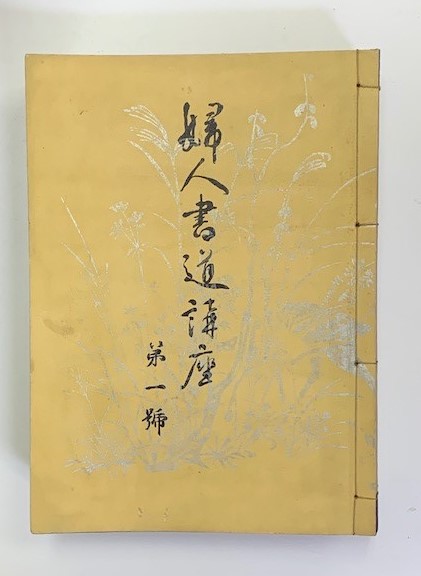 婦人書道講座
第一號